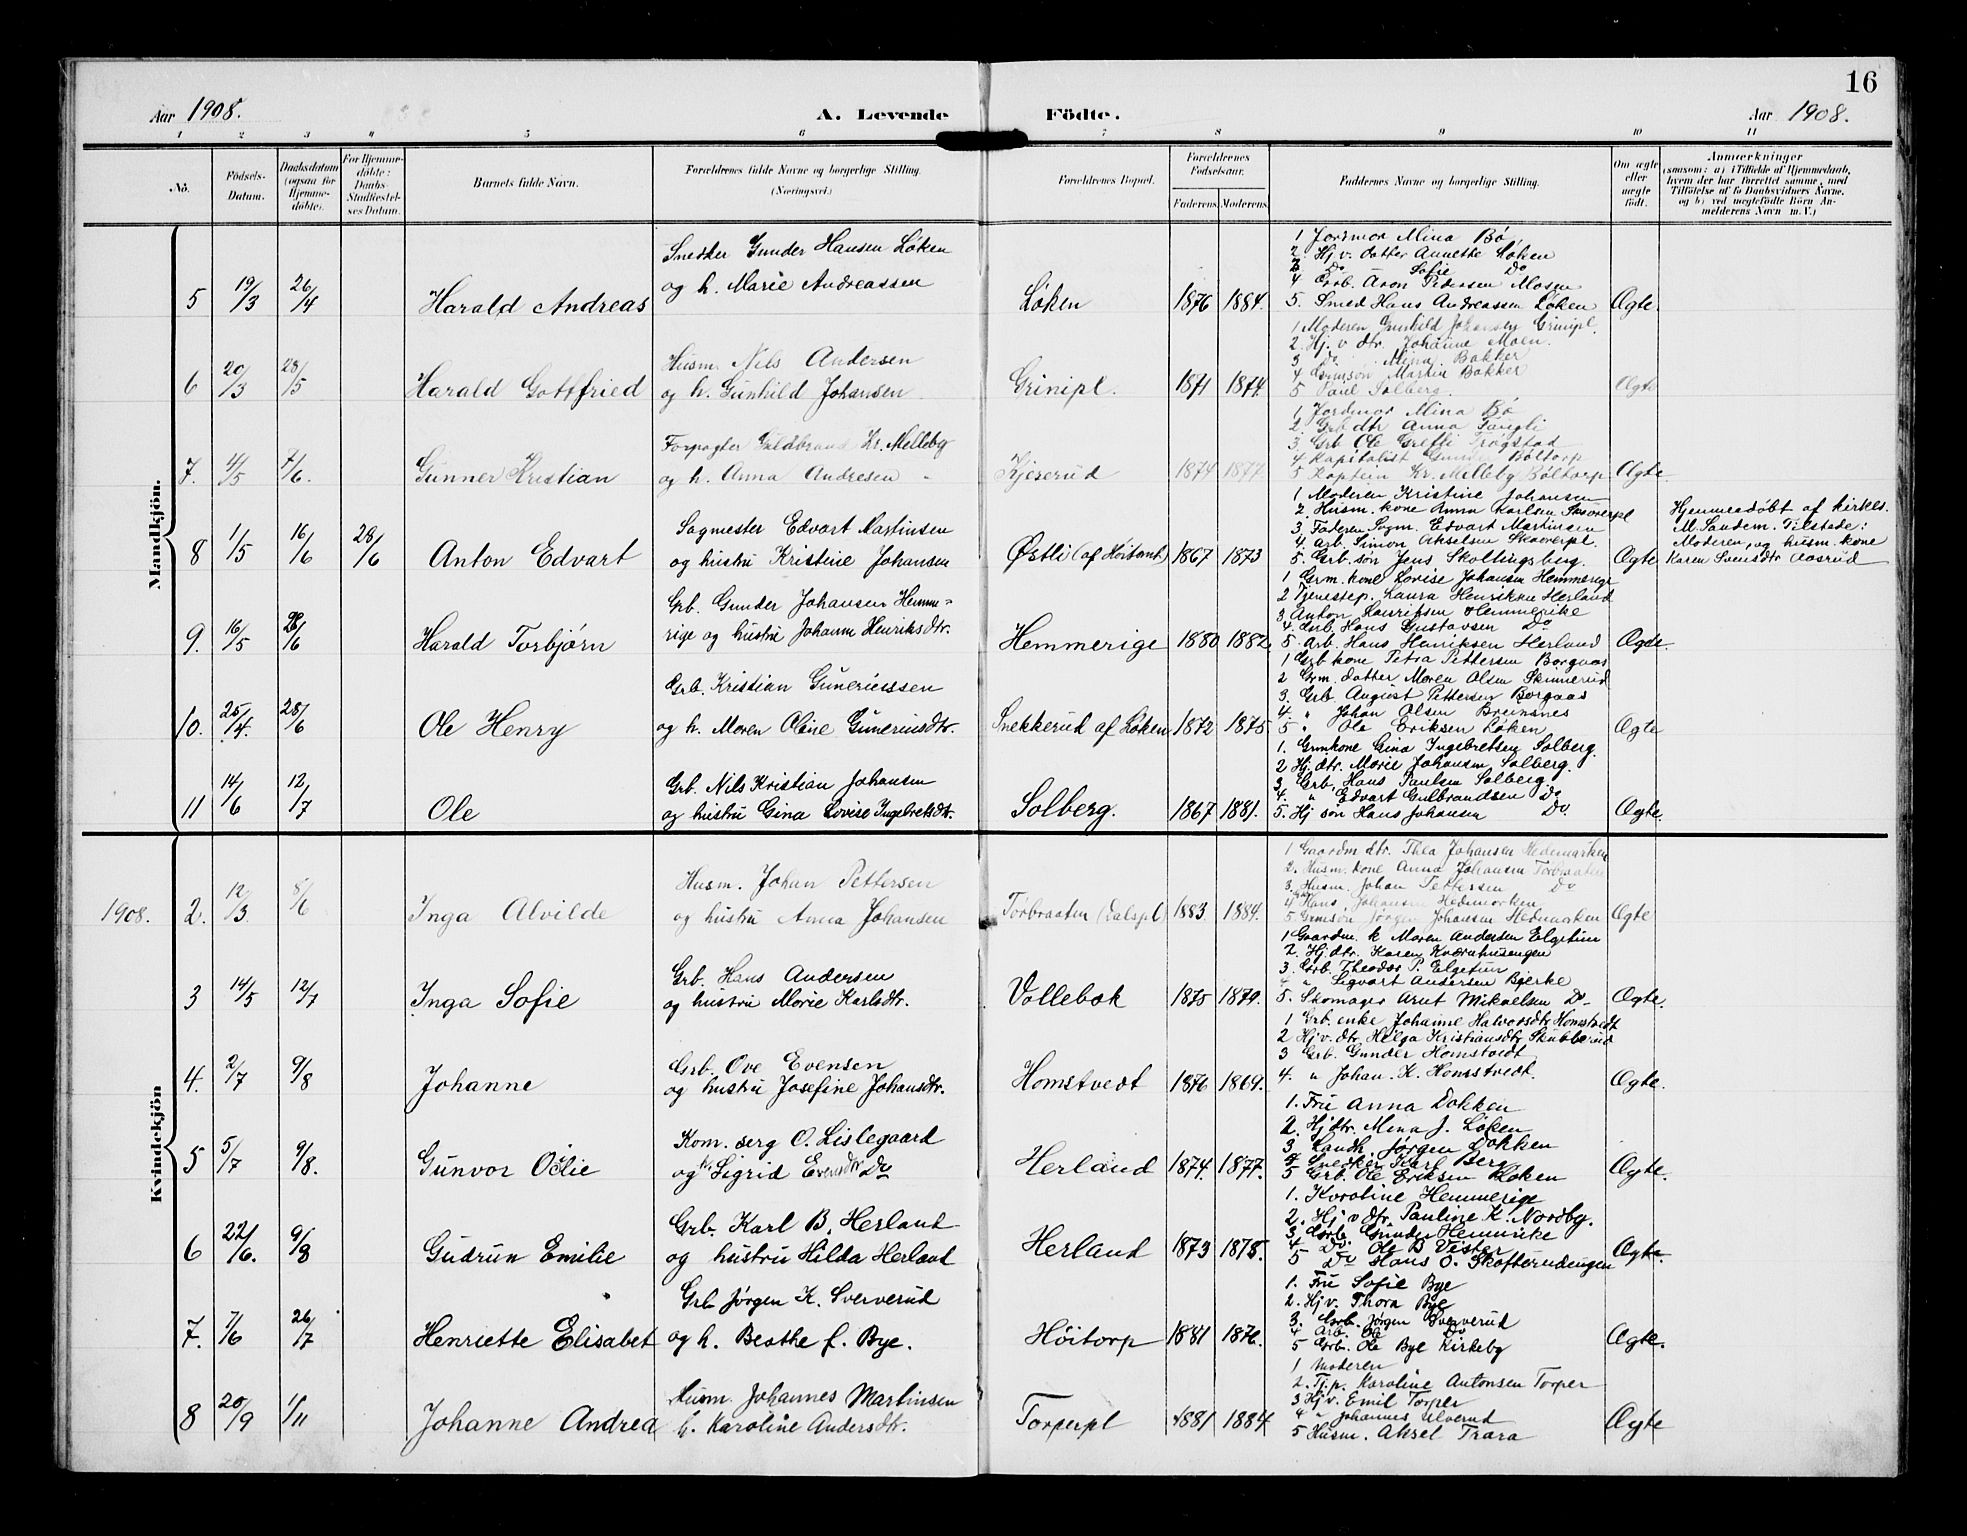 16
Aar 1908. A. Levende Födte. Aar 1908.
1 2 3 4 5 6 7 8 9 10 11
No. Födsels-Datum. Daabsdatum (ogsaa for Hjemme-döbte). For Hjemme-döbte: Daabs-Stadfæstel-ses Datum. Barnets fulde Navn. Forældrenes fulde Navne og borgerlige Stilling. (Næringsvei.) Forældrenes Bopæl. Forældrenes Födselsaar. Faderens. Moderens. Faddernes Navne og borgerlige Stilling. Om ægte eller uægte födt. Anmærkninger (saasom: a) i Tilfælde af Hjemmedaab, hvem der har forrettet samme, med Tilföielse af to Daabsvidners Navne, og b) ved uægtefödte Börn An-melderens Navn m. V.)
Mandkjön.
5 19/3 26/4 Harald Andreas
Snedker Gunder Hansen Løken
og h. Marie Andreassen
Løken 1876 1884.
1 Jordmor Mina Bø
2. Hj. v. Datter Annette Løken
3 Do Sofie Do
4 Grb. Aron Pedersen Mosen
5. Smed Hans Andreassen Løken
Ægte.
6 20/3 28/5 Harald Gottfried
Husm. Nils Andersen
og h. Gunhild Johansen
Grinipl. 1871 1874.
1 Moderen Gunhild Johansen Grinipl.
2. Hj. v dtr. Johanne Moen.
3 Do. Mina Bakker
4 Grmson Martin Bakker
5 Paul Solberg.
Ægte
7. 4/5 7/6. Gunner Kristian
Forpagter Guldbrand Kr. Melleby
og h. Anna Andresen "
Kjeserud 1874 1877.
1 Jordmor Mina Bø
2 Grb dtr Anna Fangli
3 Grb Ole Grefsli Trøgstad
4 Kapitalist Gunder Bøltorp
5 Kaptein Kr. Melleby Bøltorp
Ægte.
8 1/5 16/6 28/6 Anton Edvart
Sagmester Edvart Martinsen
og hustru Kristine Johansen
Østli (af Høitomt) 1867 1873
1 Moderen Kristine Johansen
2. Husm. kone Anna Karlsen
3. Faderen Sagm. Edvart Martinsen
4. Arb. Simon Akselsen Skoverpl.
5. Grb. søn Jens Skollingsberg.
Ægte
Hjemmedøbt af kirkes.
M. Sandem. Tilstede:
Moderen, og husm. kone
Karen Svensdtr Aasrud
9. 16/5 28/6 Harald Torbjørn
Grb. Gunder Johansen Hemme-
rige og hustru Johanne Henriksdtr.
Hemmerige 1880 1882
1 Grm. kone Lovise Johansen Hemmerige
2 Tjenestep. Laura Henriksen Herland
3 Anton Henriksen Hemmerike
4. Grb. Hans Gustavsen Do
5. Arb. Hans Henriksen Herland
Ægte.
10. 25/4. 28/6 Ole Henry
Grb. Kristian Guneriussen
og h. Maren Oline Guneriusdtr.
Snekkerud af Løken 1872 1875
1 Grb kone Petra Pettersen Borgaas
2 Grm. datter Maren Olsen Skinnerud
3. Grb August Pettersen Borgaas
4. " Johan Olsen Breisnes
5 " Ole Eriksen Løken
Ægte
11 14/6 12/7 Ole
Grb. Nils Kristian Johansen
og hustru Gina Lovise Ingebretsdtr.
Solberg. 1867 1881.
1. Grmkone Gina Ingebretsen Solberg.
2 Hj. dtr. Marie Johansen Solberg.
3. Grb. Hans Paulsen Solberg
4. " Edvart Gulbrandsen Do
5. Hj søn Hans Johansen Do.
Ægte.
Kvindekjön
1908. 2. 12/3. 8/6 Inga Alvilde
Husm. Johan Pettersen
og hustru Anna Johansen
Torbraaten (Dalspl) 1883. 1884.
1 Gaardm dtr. Thea Johansen Hedemarken
2. Husm. kone Anna Johansen Torbraaten
3. Husm. Johan Pettersen Do
4 Hans Johansen Hedemarken
5 Grmsøn Jørgen Johansen Hedemarken
Ægte
3 14/5 12/7 Inga Sofie
Grb. Hans Andersen
og hustru Marie Karlsdtr.
Vollebæk 1875 1879.
1 Gaardm. k Maren Andersen Elgetun
2. Hj. dtr. Karen Kværnhusengen
3. Grb. Theodor P. Elgetun
4 " Sigvart Andersen Bjerke
5. Skomager Arnt Mikaelsen Do-
Ægte.
4. 2/7 9/8 Johanne
Grb. Ove Evensen
og hustru Josefine Johansdtr.
Homstvedt 1876 1869.
1 Grb. enke Johanne Halvorsdtr. Homstvedt
2 Hj. v. dtr. Helga Kristiansdtr Skubberud
3 Grb. Gunder Homstvedt
4. " Johan. K. Homstvedt.
Ægte.
5 5/7 9/8. Gunvor Odlie
Kom. serg O. Lislegaard
og h. Sigrid Evensdtr Do
Herland 1874. 1877.
1. Fru Anna Dokken
2. Hj dtr. Mina J. Løken
3 Landh. Jørgen Dokken
4 Snedker Karl Berg
5 Grb. Ole Eriksen Løken
Ægte.
6 22/6. 9/8 Gudrun Emilie
Grb. Karl B. Herland
og hustru Hilda Herland
Herland 1873 1878.
1. Karoline Hemmerige
2. Hj v dtr. Pauline K. Nordby.
3. Grb. Gunder Hemmrike
4. Do. Ole B Vister
5 Do Hans O. Skofterudengen
Ægte.
7. 7/6 26/7 Henriette Elisabet
Grb Jørgen K. Sververud
og h. Beathe f. Bye.
Høitorp 1881 1876.
1. Fru Sofie Bye
2. Hj v. Thora Bye
3. Grb. Jørgen Sververud
4 Arb. Ole Do
5 Grb. Ole Bye Kirkeby
Ægte.
8 20/9 1/11 Johanne Andrea
Husm. Johannes Martinsen
h. Karoline Andersdtr.
Torperpl 1881 1884
1 Moderen
2. Tj. p. Karoline Antonsen Torper
3 Hj v. Emil Torper
4 " Johannes Ulverud
5 Husm. Aksel Trara
Ægte